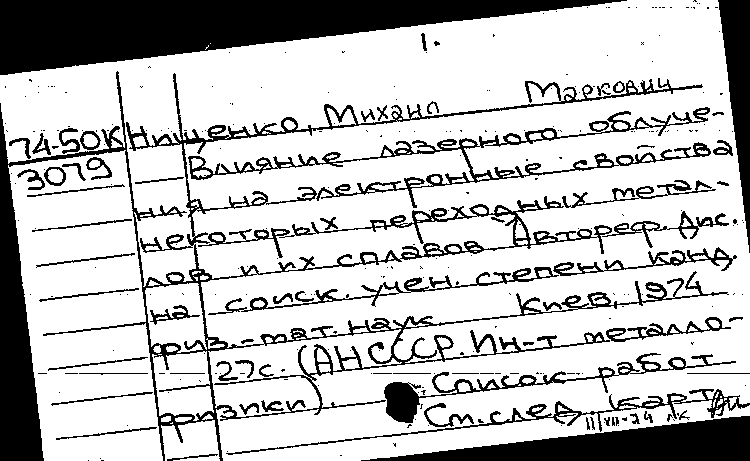 1.
74-50К Нищенко, Михаил Маркович
3079 Влияние лазерного облуче-
ния на электронные свойства
некоторых переходных метал-
лов и их сплавов Автореф. Дис.
на соиск. учен. степени канд.
физ.-мат. наук Киев, 1974
27с. (АН СССР. Ин-т металло-
физики). Список работ
См. след карт.
11/VII-74 лк